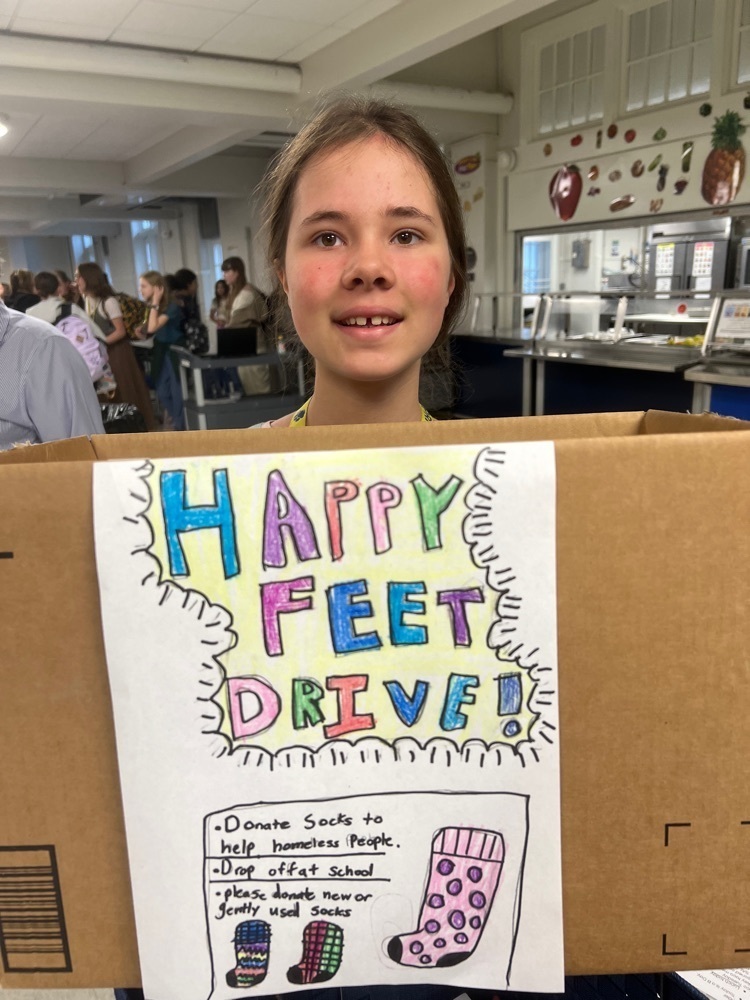 HAPPY
FEET
DRIVE!
•Donate Socks to
help homeless People.
•Drop off at school
•please donate new or
gently used socks